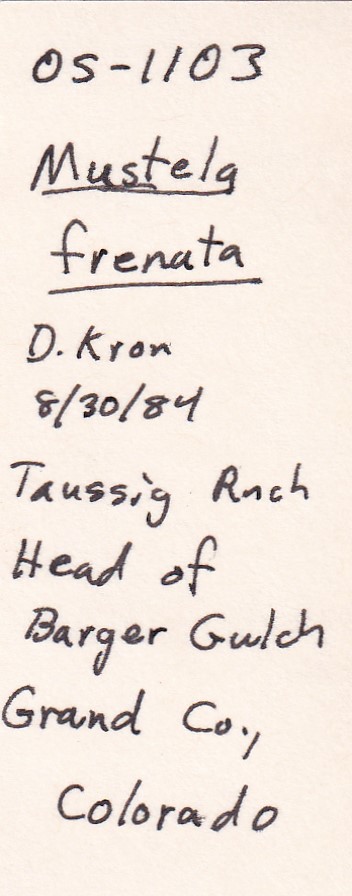 OS-1103
Mustela
frenata
D. Kron
8/30/84
Taussig Rnch
Head of
Barger Gulch
Grand Co.,
Colorado